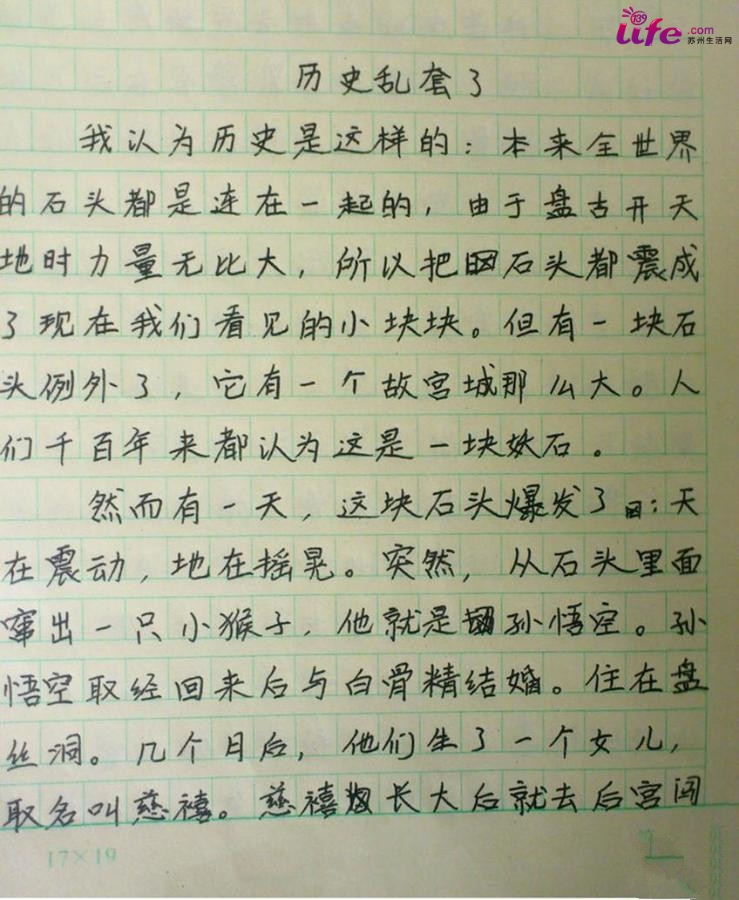 139
life.com
苏州生活网
历史乱套了
我认为历史是这样的：本来全世界
的石头都是连在一起的，由于盘古开天
地时力量无比大，所以把石头都震成
了现在我们看见的小块块。但有一块石
头例外了，它有一个故宫城那么大。人
们千百年来都认为这是一块妖石。
然而有一天，这块石头爆发了：天
在震动，地在摇晃。突然，从石头里面
窜出一只小猴子，他就是孙悟空。孙
悟空取经回来后与白骨精结婚。住在盘
丝洞。几个月后，他们生了一个女儿，
取名叫慈禧。慈禧长大后就去后宫闯
17×19